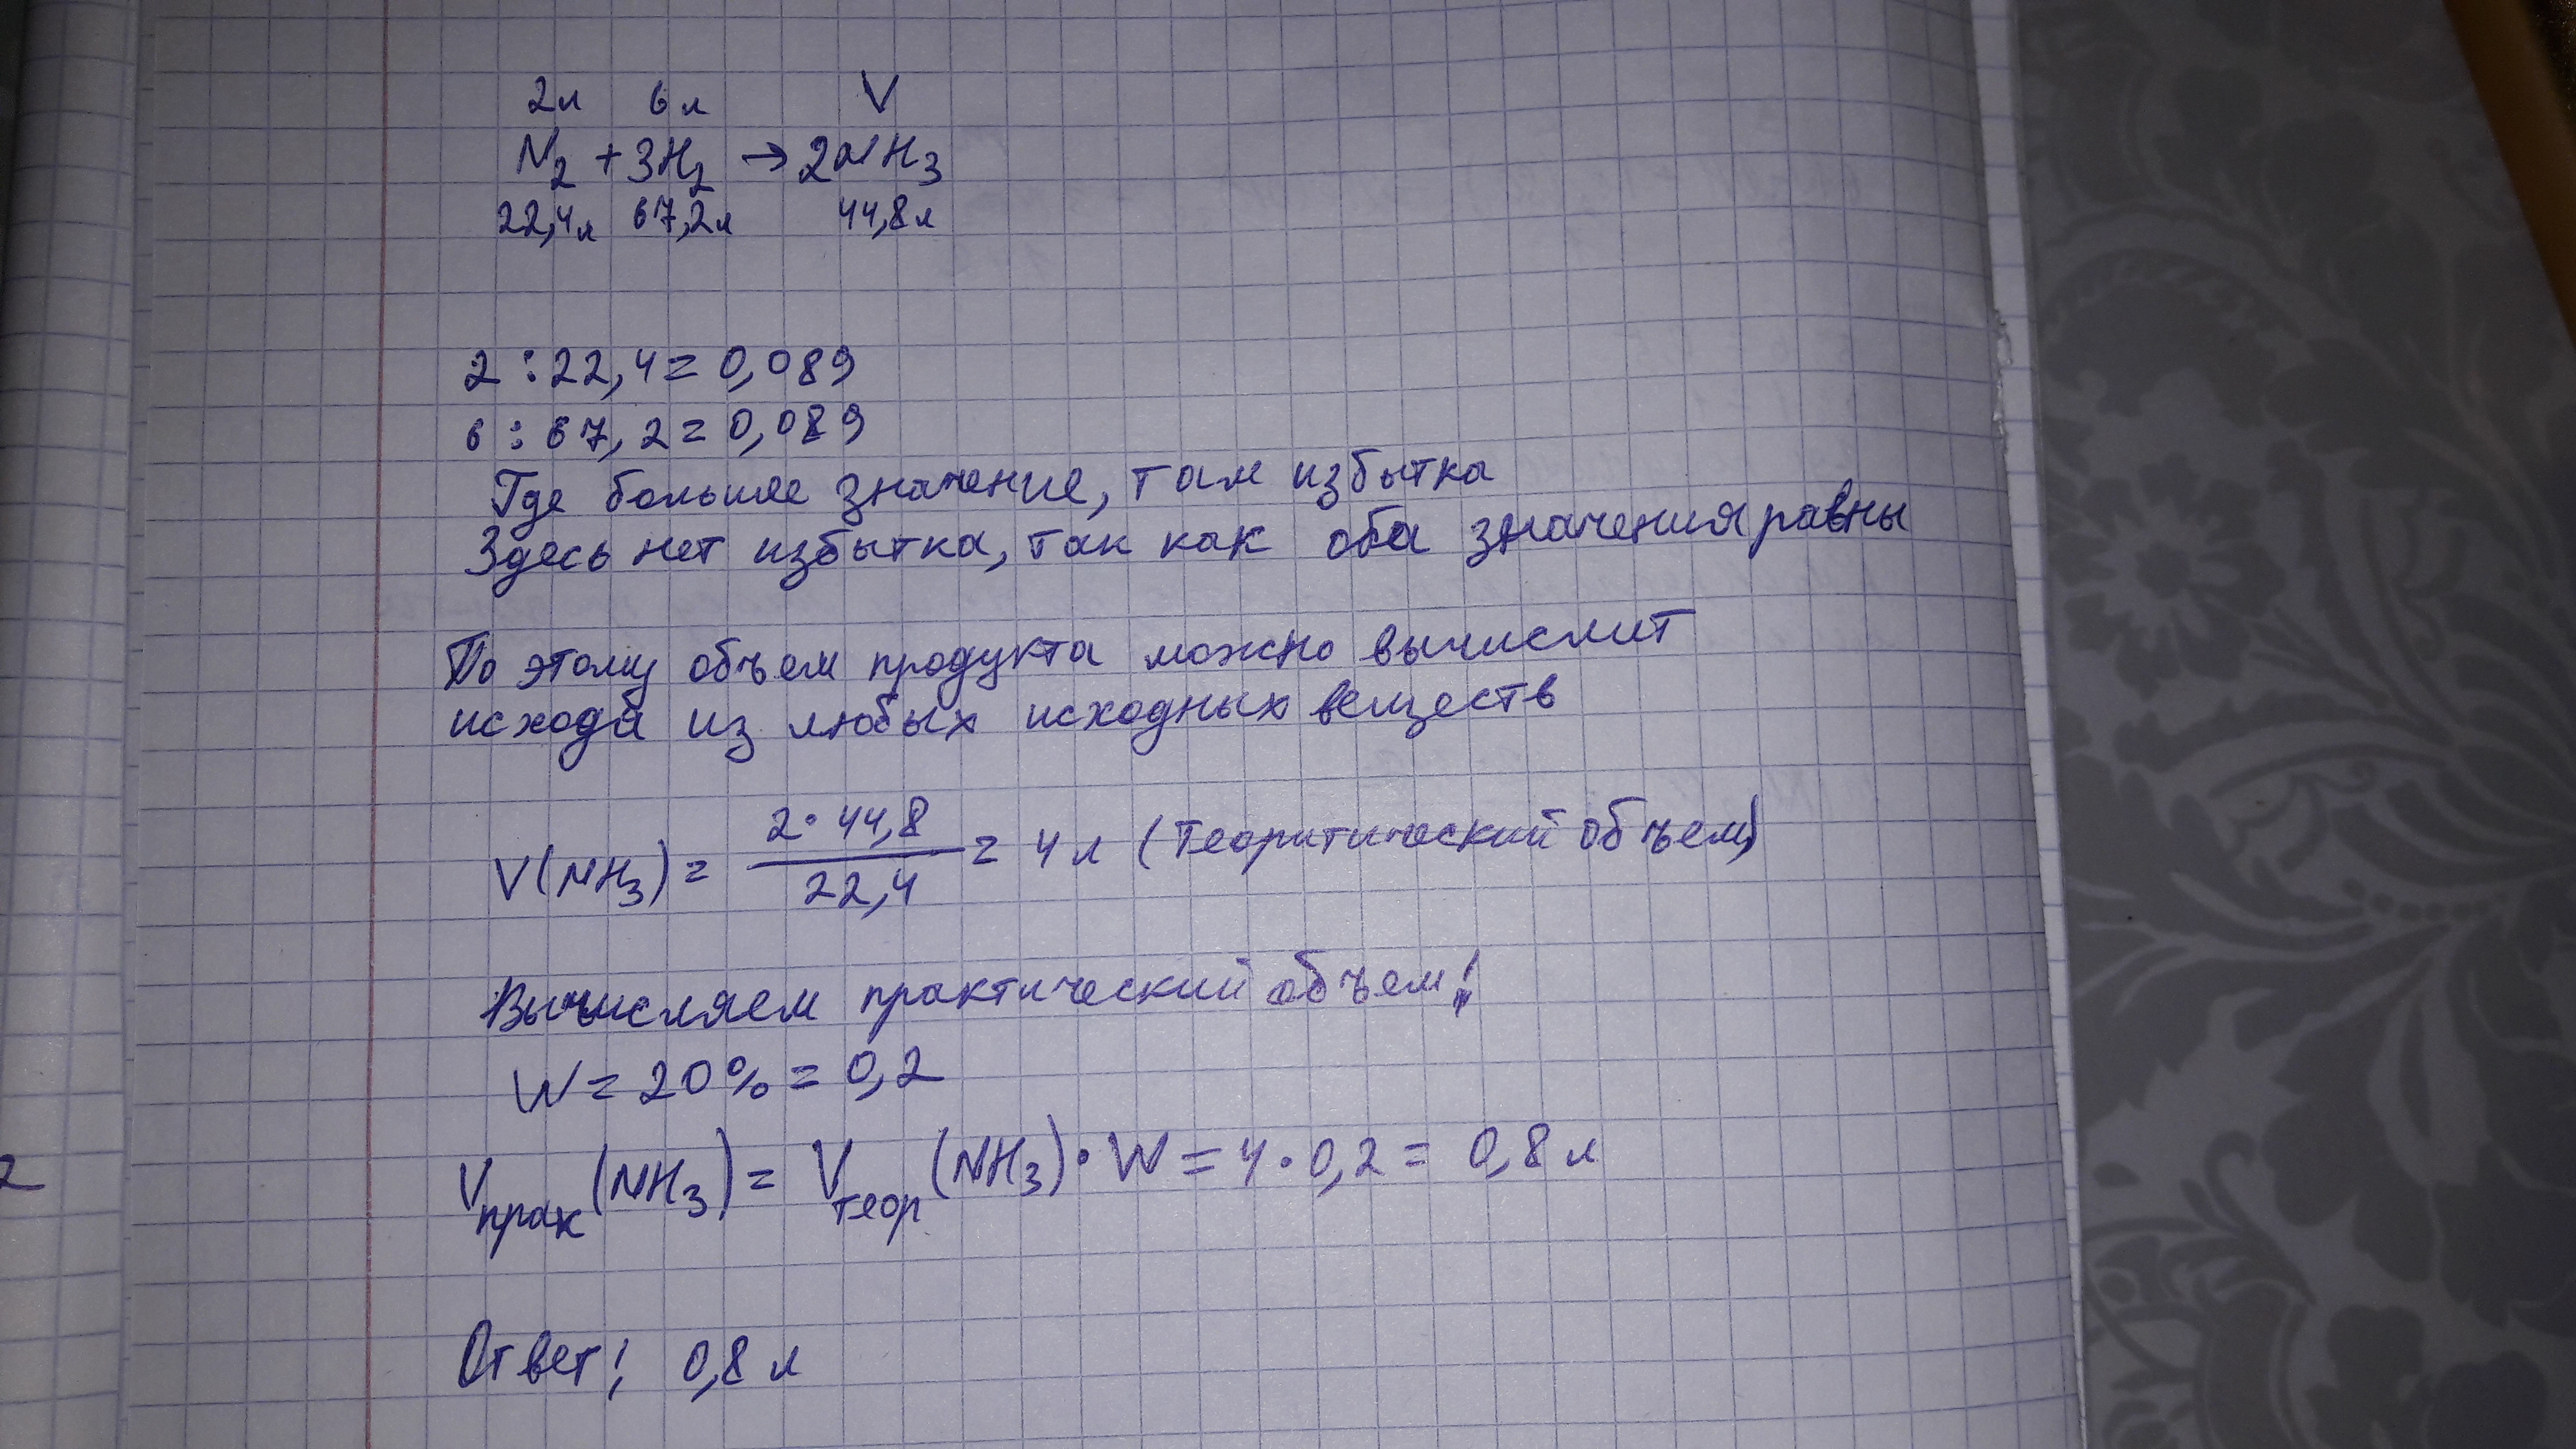 2л 6л V
N₂ + 3H₂ → 2NH₃
22,4л 67,2л 44,8л
2 : 22,4 = 0,089
6 : 67,2 = 0,089
Где большее значение, там избытка
Здесь нет избытка, так как оба значения равны
По этому объем продукта можно вычислит
исходя из любых исходных веществ
V(NH₃) = 2·44,8 / 22,4 = 4 л (Теоритический объем)
Вычисляем практический объем:
W = 20% = 0,2
2
Vпрак(NH₃) = Vтеор(NH₃)·W = 4·0,2 = 0,8 л
Ответ: 0,8 л